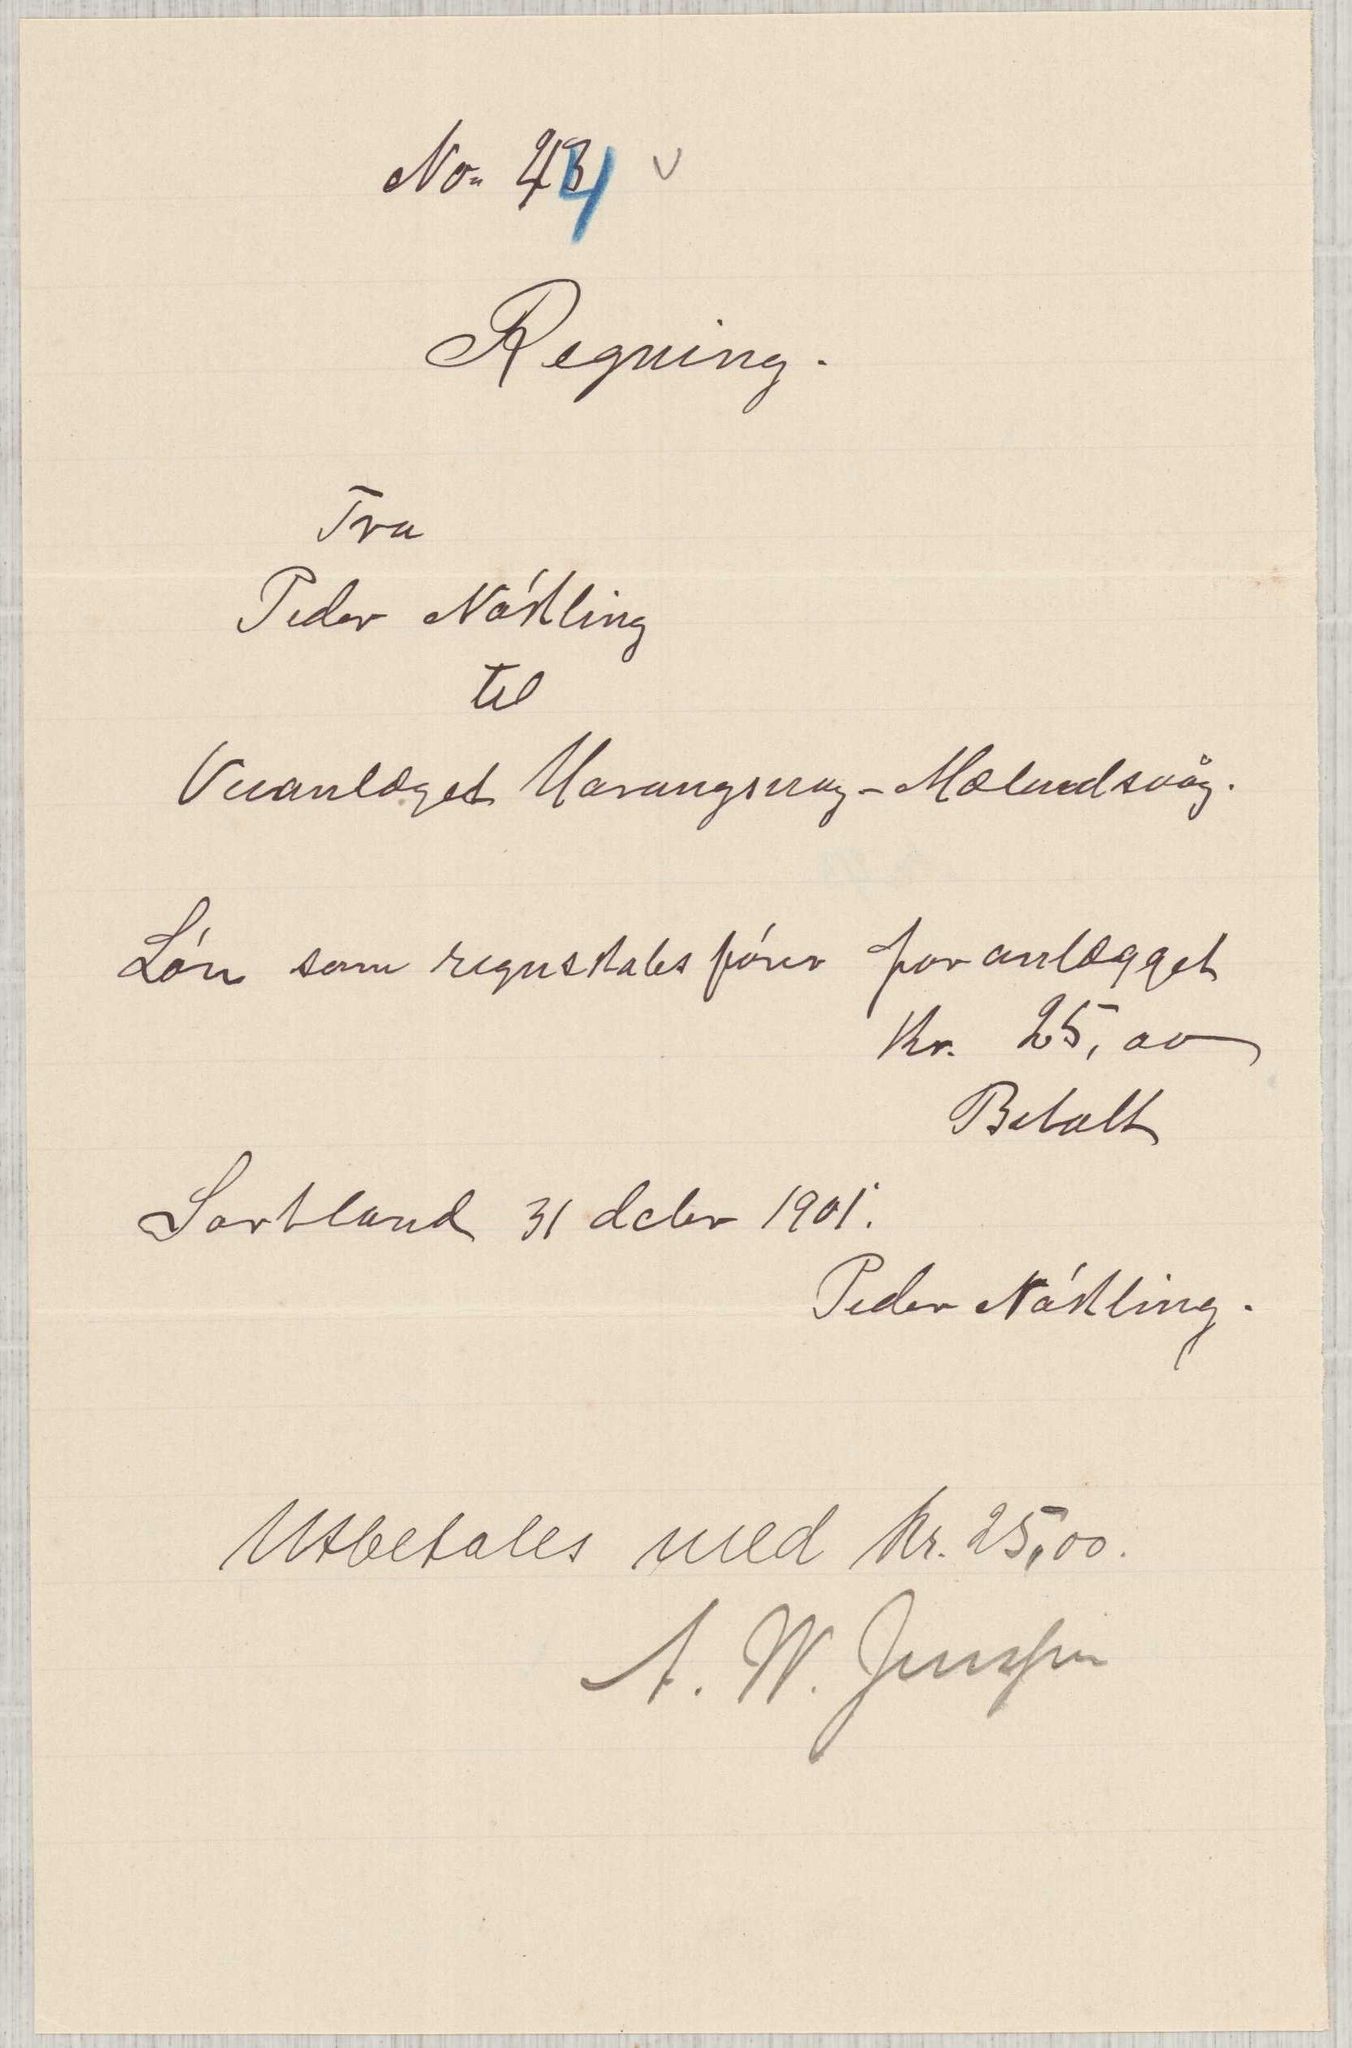 No. 434 v
Regning.
Fra
Peder Nökling
til
Veianlæget Maurnesvåg - Mælendsvåg.
Lön som regnskabsförer for anlægget
Kr. 25,00
Betalt
Sortland 31 decbr 1901.
Peder Nökling.
Utbetales med kr. 25,00.
A. W. Jenssen